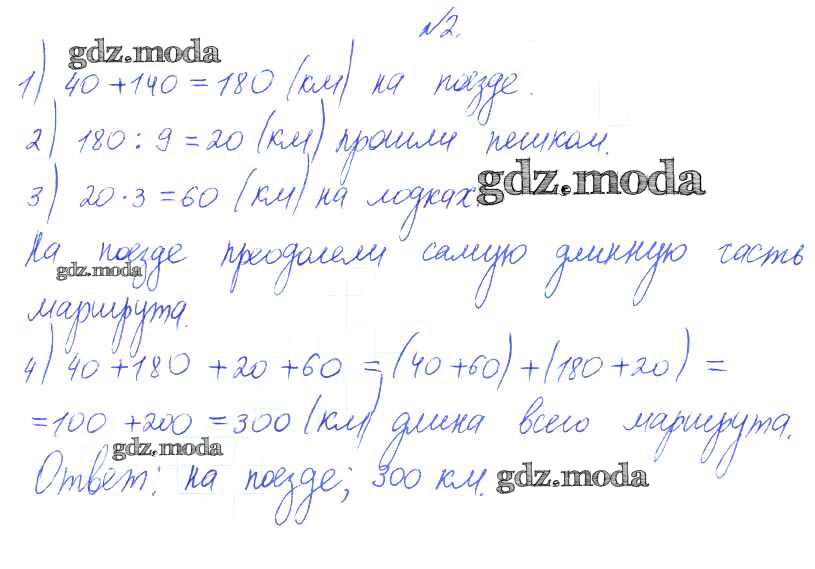 №2.
gdz.moda
1) 40 + 140 = 180 (км) на поезде.
2) 180 : 9 = 20 (км) прошли пешком.
3) 20 · 3 = 60 (км) на лодках. gdz.moda
На поезде преодолели самую длинную часть
gdz.moda
маршрута.
4) 40 + 180 + 20 + 60 = (40 + 60) + (180 + 20) =
= 100 + 200 = 300 (км) длина всего маршрута.
gdz.moda
Ответ: на поезде; 300 км. gdz.moda